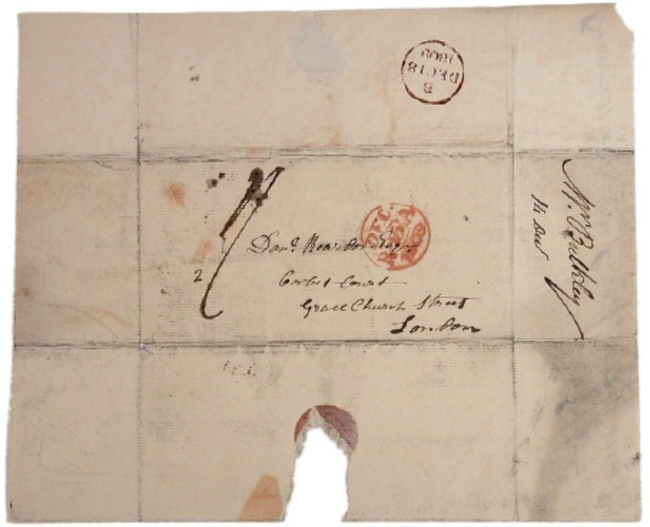 B
DEC 18
1809
Danl. Reardon Esqr
2
Corbet Court
Grace Church Street
London
DEC
1809
Mrs Bulkley
14 Dec